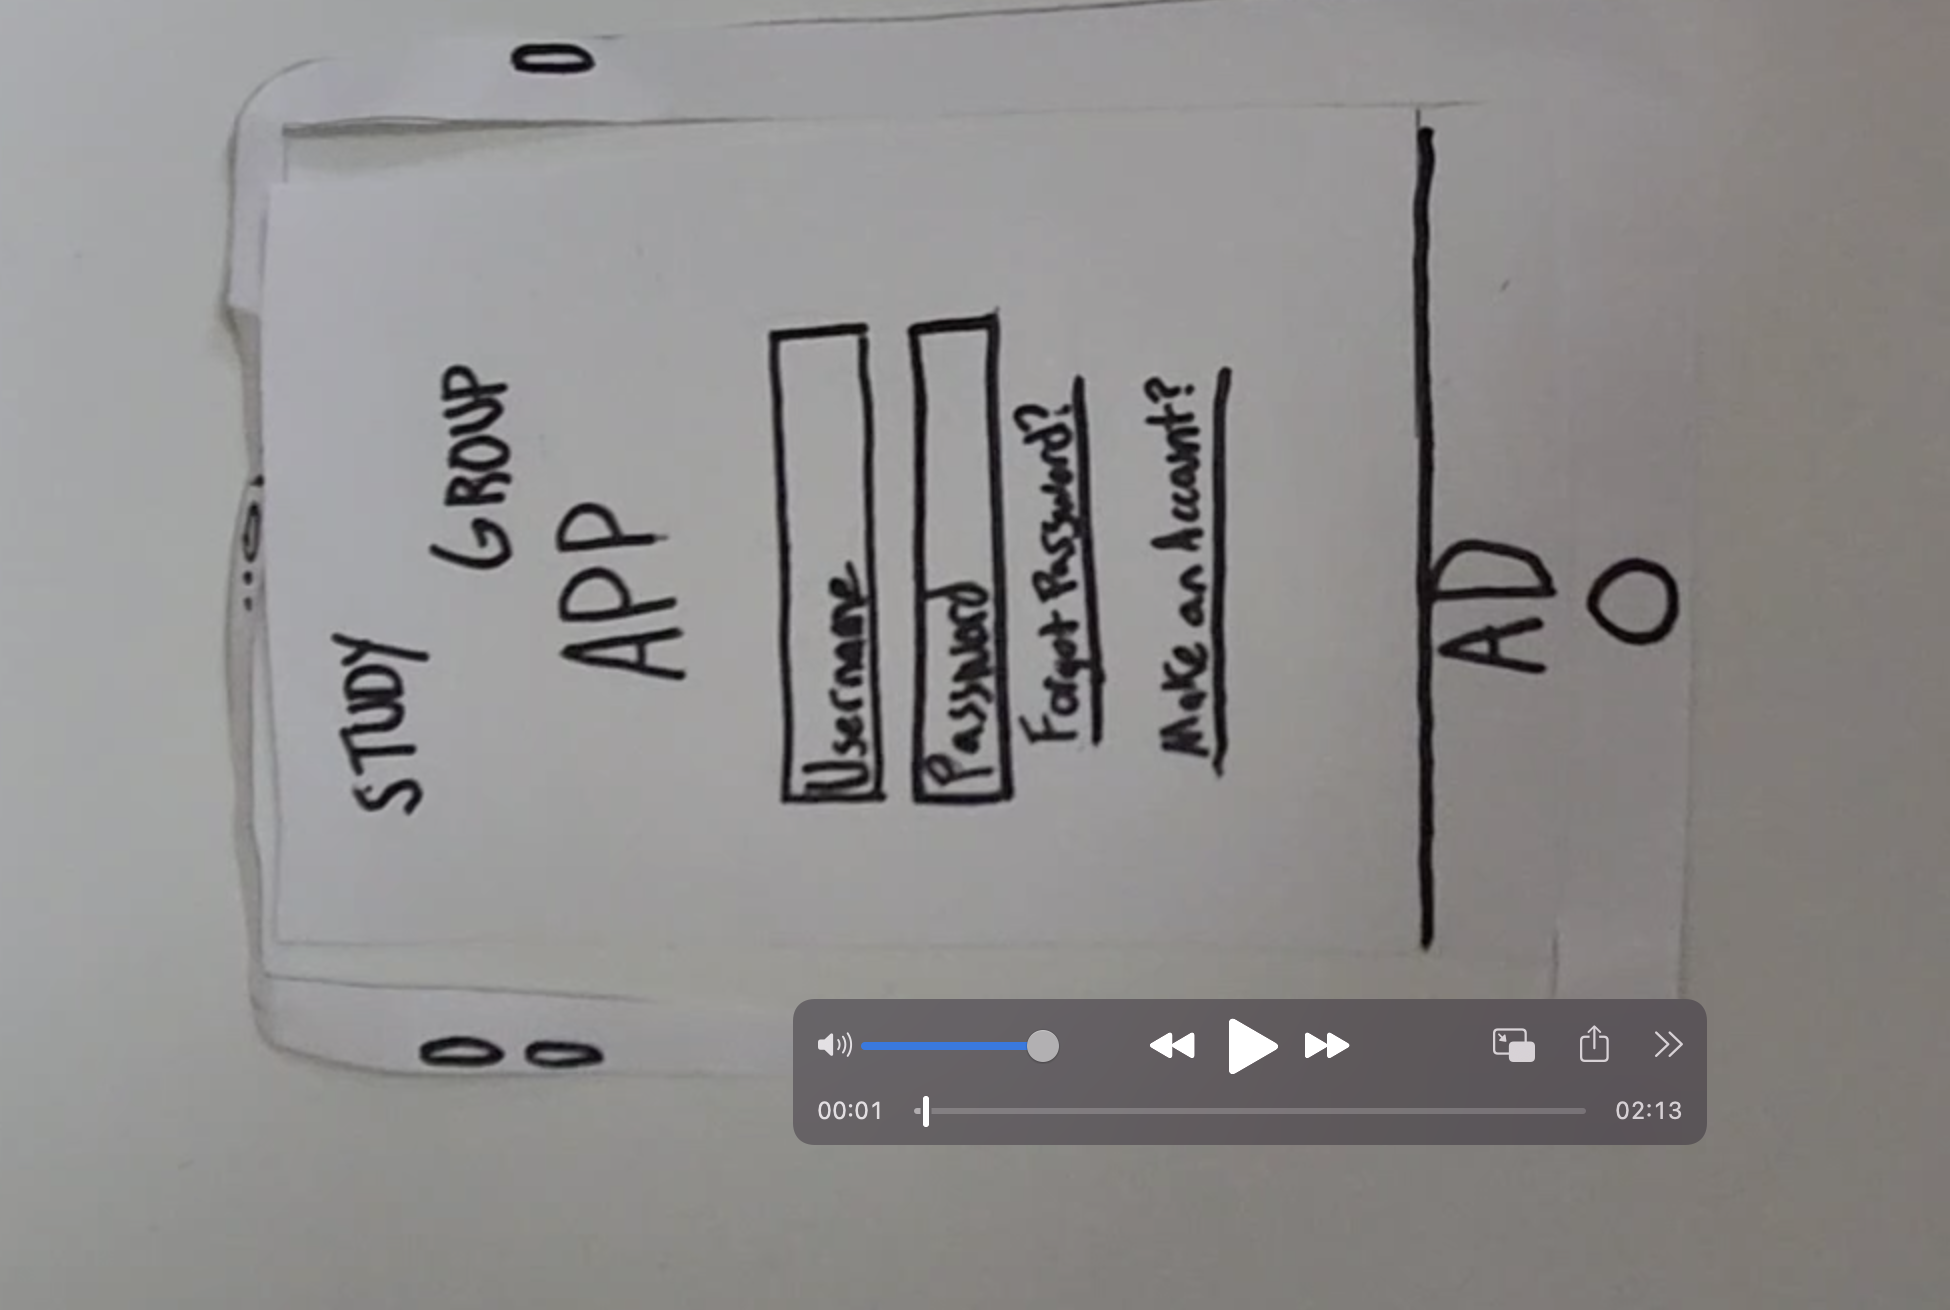 STUDY
GROUP
APP
Username
Password
Forgot Password?
Make an Account?
AD
00:01
02:13